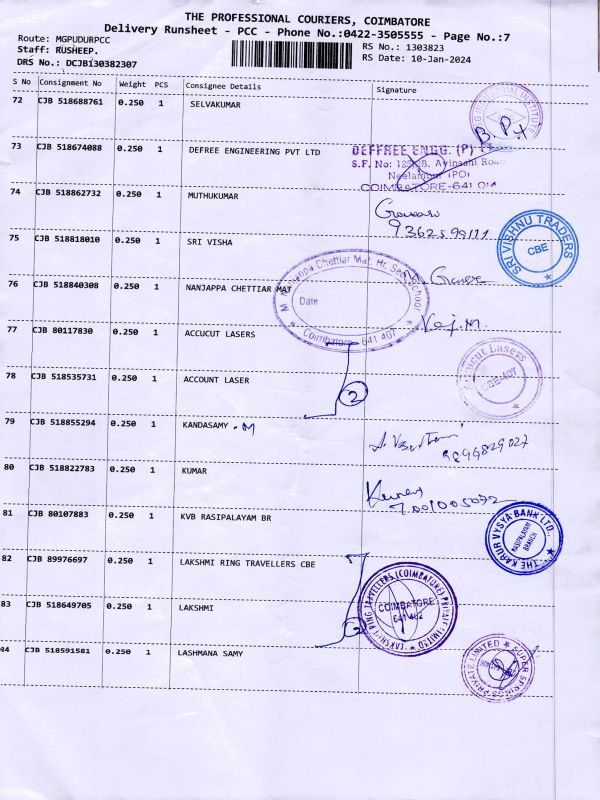 THE PROFESSIONAL COURIERS, COIMBATORE
Delivery Runsheet - PCC - Phone No.:0422-3505555 - Page No.:7
Route: MGPUDURPCC
RS No.: 1303823
Staff: RUSHEEP.
RS Date: 10-Jan-2024
DRS No.: DCJB130382307
S No Consignment No Weight PCS Consignee Details Signature
72 CJB 518688761 0.250 1 SELVAKUMAR
B. P
73 CJB 518674088 0.250 1 DEFREE ENGINEERING PVT LTD
DEFFREE ENGG. (P)
S.F. No: Avinashi Road
Neelambur (PO)
COIMBATORE-641 014
74 CJB 518862732 0.250 1 MUTHUKUMAR
75 CJB 518818010 0.250 1 SRI VISHA
SRI VISHNU TRADERS
CBE
76 CJB 518840308 0.250 1 NANJAPPA CHETTIAR MAT
Chettiar Mat. Hr. Sec. School
Date
Coimbatore - 641 407
77 CJB 80117830 0.250 1 ACCUCUT LASERS
Accucut Lasers
CBE-407
78 CJB 518535731 0.250 1 ACCOUNT LASER
2
79 CJB 518855294 0.250 1 KANDASAMY . M
80 CJB 518822783 0.250 1 KUMAR
81 CJB 80107883 0.250 1 KVB RASIPALAYAM BR
THE KARUR VYSYA BANK LTD.,
RASIPALAYAM
BRANCH
82 CJB 89976697 0.250 1 LAKSHMI RING TRAVELLERS CBE
LAKSHMI RING TRAVELLERS (COIMBATORE) PRIVATE LIMITED
COIMBATORE
641 402
83 CJB 518649705 0.250 1 LAKSHMI
2
84 CJB 518591581 0.250 1 LASHMANA SAMY
SUPER SPINCS PRIVATE LIMITED